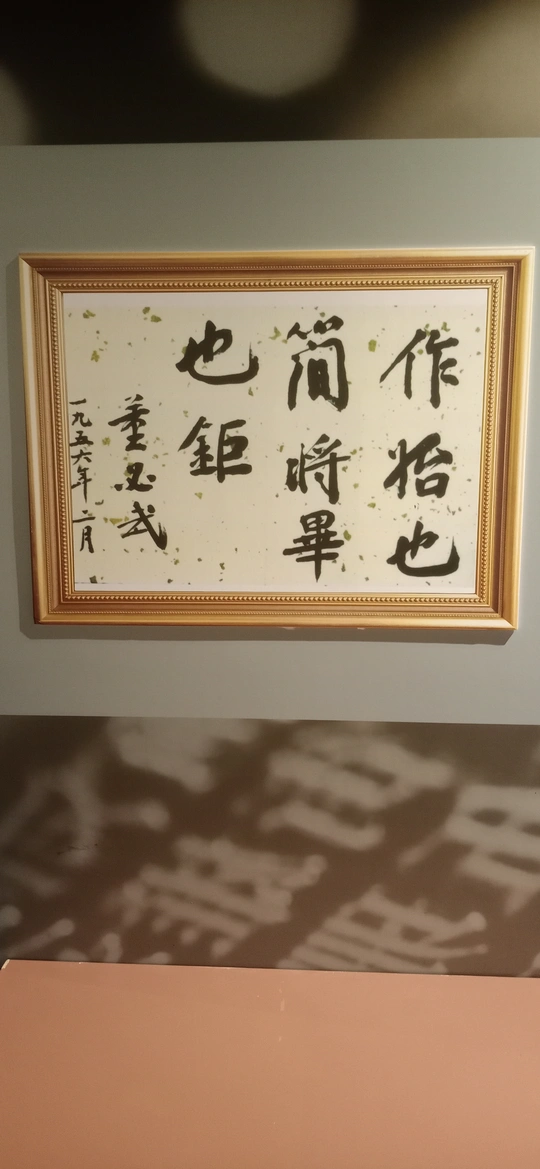 作始也
简将畢
也鉅
董必武
一九五六年二月